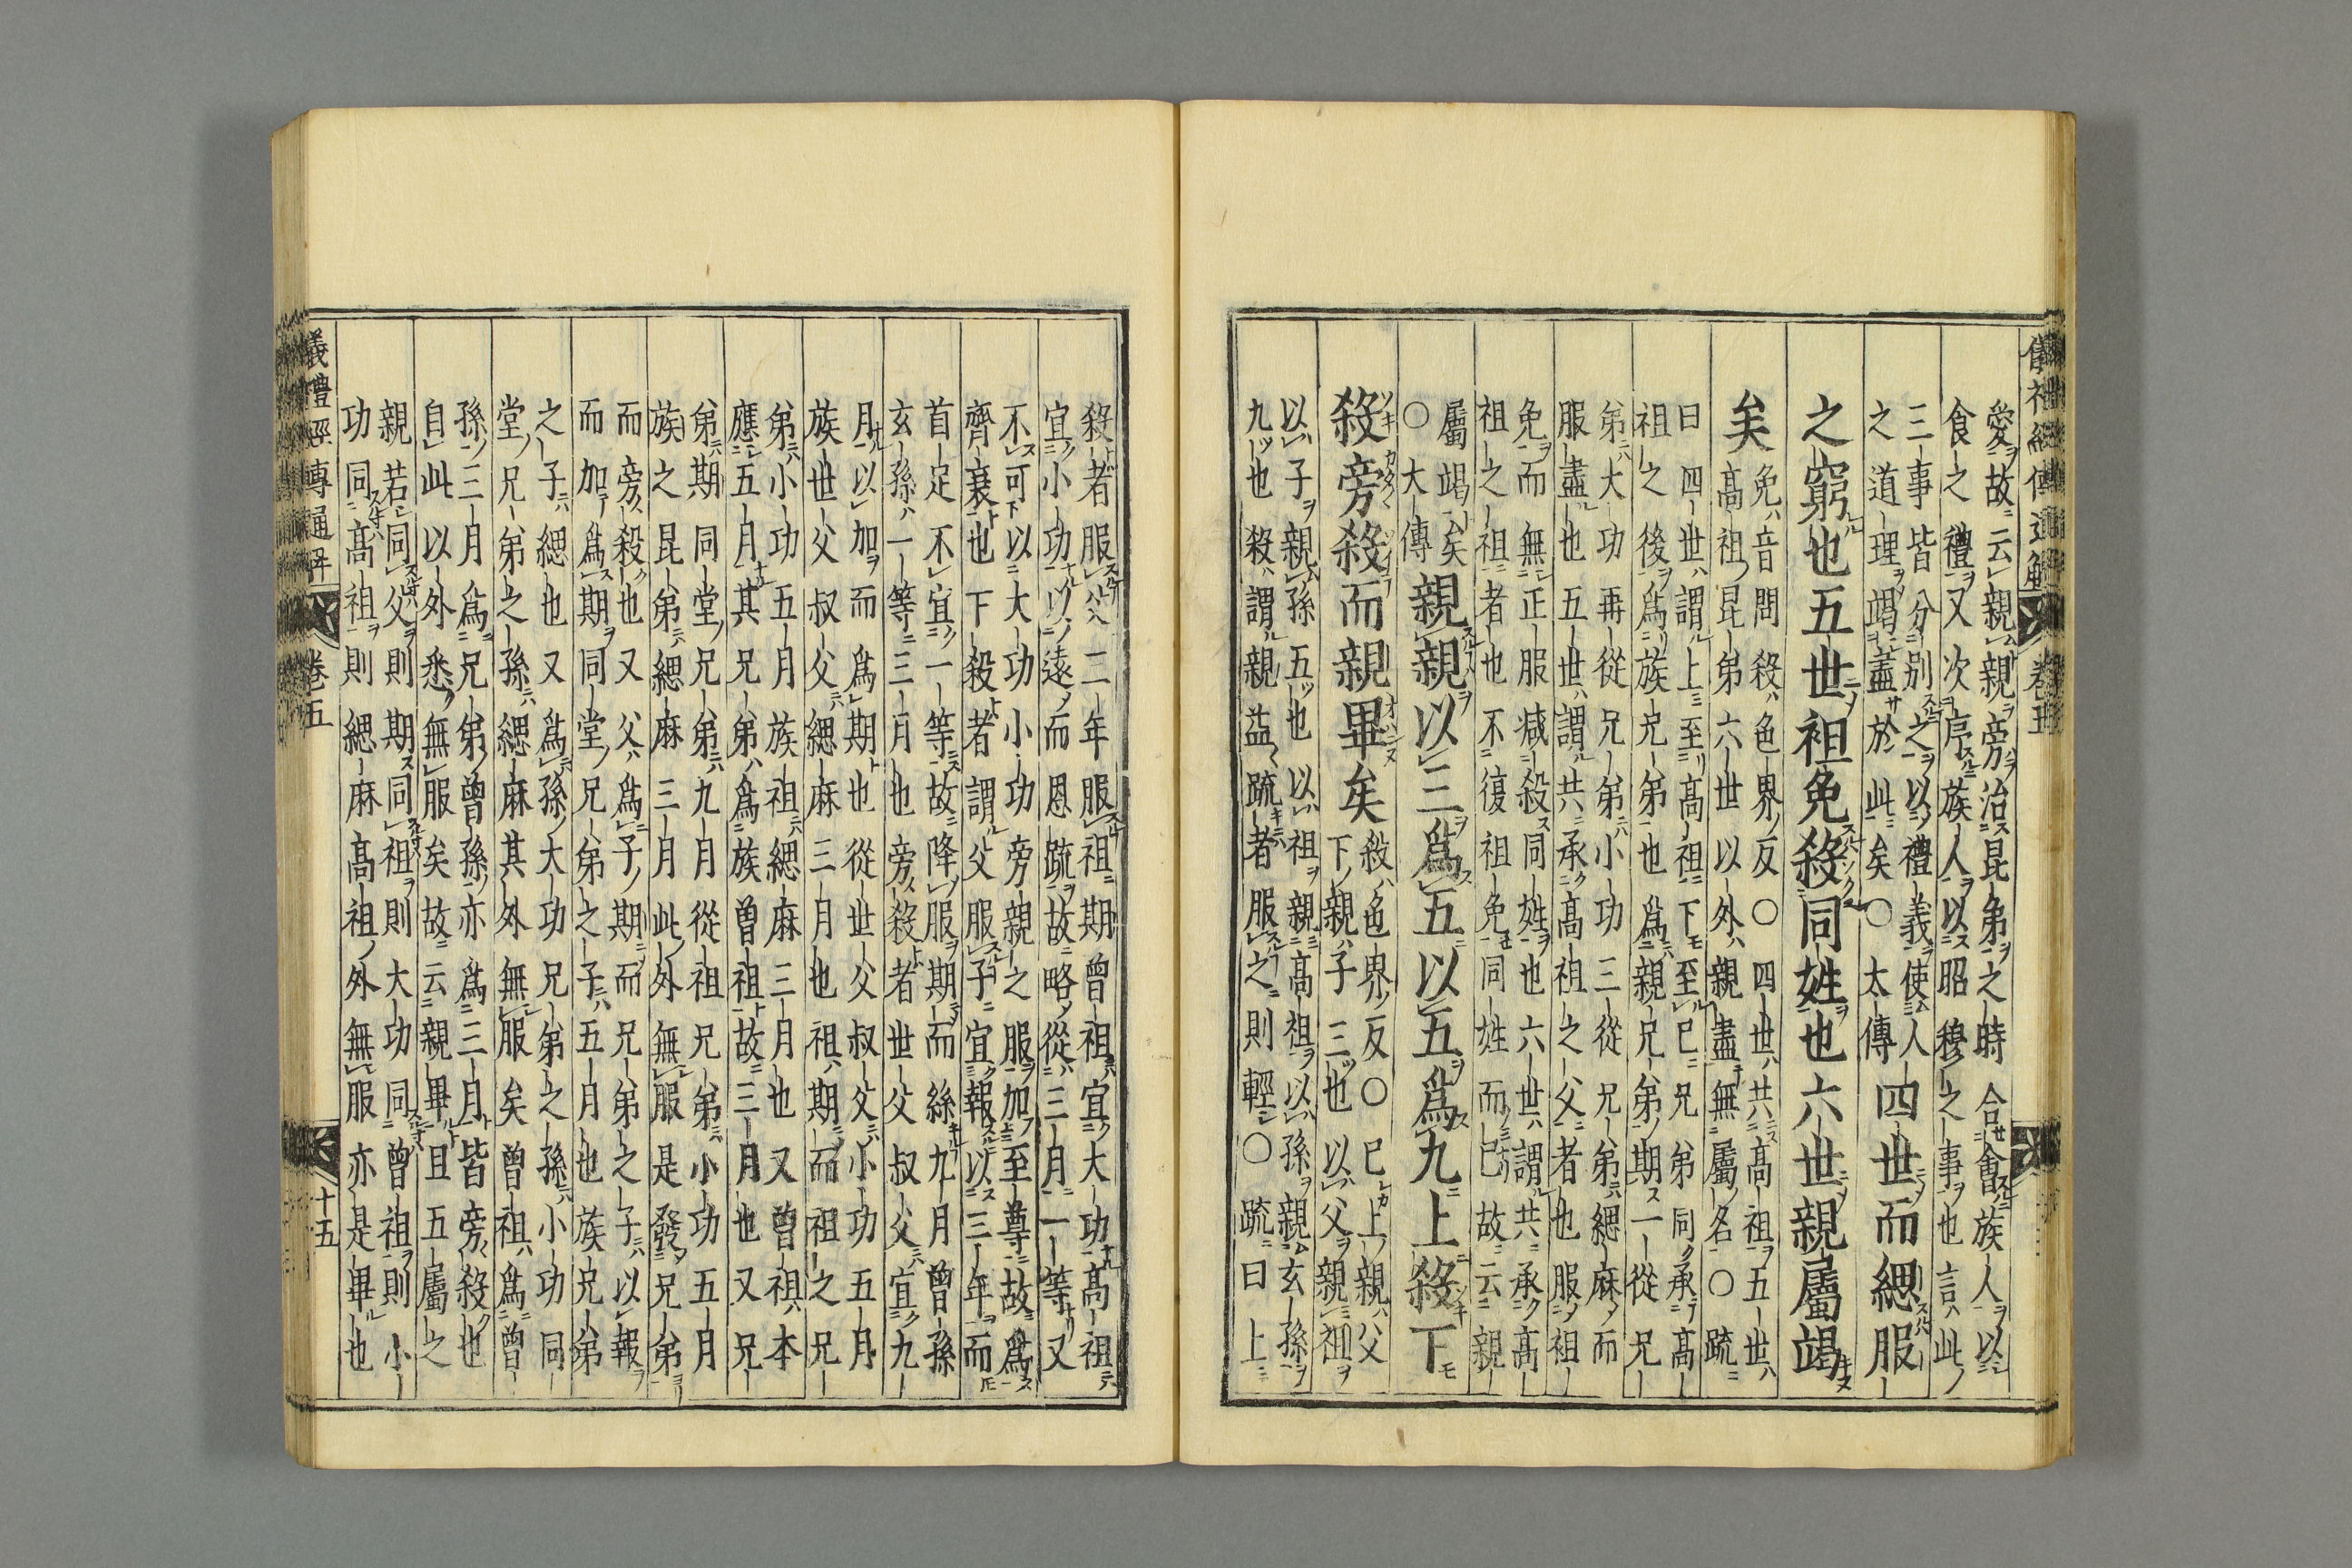 儀禮經傳通解 卷五
愛故云親親旁治昆弟之時合會族人以
食之禮又次序族人以昭穆之事也言此
三事皆分別之以禮義使人
之道理竭盡於此矣○太傳四世而緦服
之窮也五世袒免殺同姓也六世親屬竭
矣免音問殺色界反○四世共高祖五世
高祖昆弟六世以外親盡無屬名○疏
曰四世謂上至高祖下至已兄弟同承高
祖之後爲族兄弟也爲親兄弟期一從兄
弟大功再從兄弟小功三從兄弟緦麻而
服盡也五世謂共承高祖之父者也服袒
免而無正服減殺同姓也六世謂共承高
祖之祖者也不復袒免同姓而已故云親
屬竭矣
○大傳親親以三爲五以五爲九上殺下
殺旁殺而親畢矣殺色界反○已上親父
下親子三也以父親祖
以子親孫五也以祖親高祖以孫親玄孫
九也殺謂親益疏者服之則輕○疏曰上
殺者服父二年服祖期曾祖宜大功高祖
宜小功以遠而恩疏故略從三月一等又
不可以大功小功旁親之服加至尊故爲
齊衰也下殺者謂父服子宜報以三年而
首足不宜一等故降服期而絲九月曾孫
玄孫一等三月也旁殺者世父叔父宜九
月以加而爲期也從世父叔父小功五月
族世父叔父緦麻三月也祖期而祖之兄
弟小功五月族祖緦麻三月也又曾祖本
應五月其兄弟爲族曾祖故三月也又兄
弟期同堂兄弟九月從祖兄弟小功五月
族之昆弟緦麻三月此外無服是發兄弟
而旁殺也又父爲子期而兄弟之子以報
而加爲期同堂兄弟之子五月也族兄弟
之子緦也又爲孫大功兄弟之孫小功同
堂兄弟之孫緦麻其外無服矣曾祖爲曾
孫三月爲兄弟曾孫亦爲三月皆旁殺也
自此以外悉無服矣故云親畢且五屬之
親若同父則期同祖則大功同曾祖則小
功同高祖則緦麻高祖外無服亦是畢也
儀禮經傳通解 卷五 十五